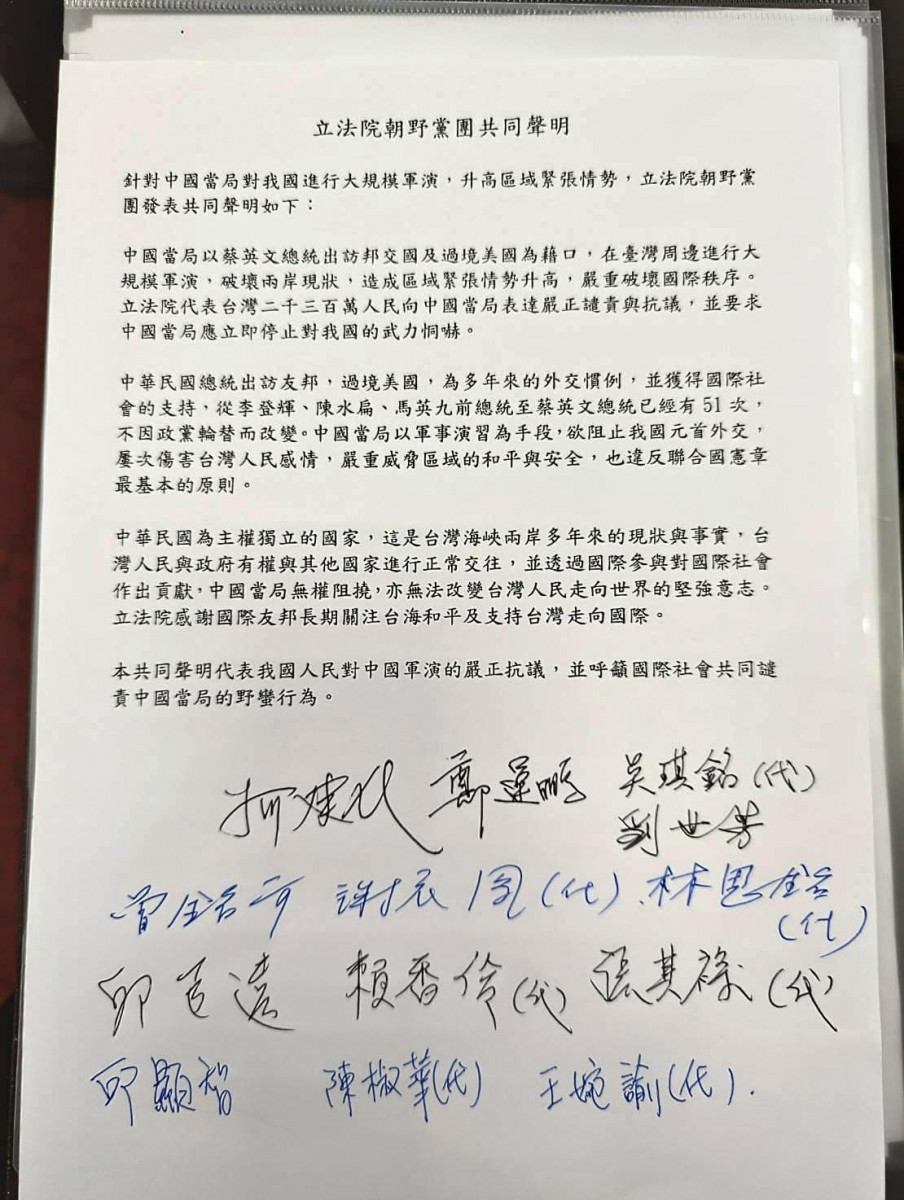 立法院朝野黨團共同聲明
針對中國當局對我國進行大規模軍演，升高區域緊張情勢，立法院朝野黨
團發表共同聲明如下：
中國當局以蔡英文總統出訪邦交國及過境美國為藉口，在臺灣周邊進行大
規模軍演，破壞兩岸現狀，造成區域緊張情勢升高，嚴重破壞國際秩序。
立法院代表台灣二千三百萬人民向中國當局表達嚴正譴責與抗議，並要求
中國當局應立即停止對我國的武力恫嚇。
中華民國總統出訪友邦，過境美國，為多年來的外交慣例，並獲得國際社
會的支持，從李登輝、陳水扁、馬英九前總統至蔡英文總統已經有 51 次，
不因政黨輪替而改變。中國當局以軍事演習為手段，欲阻止我國元首外交，
屢次傷害台灣人民感情，嚴重威脅區域的和平與安全，也違反聯合國憲章
最基本的原則。
中華民國為主權獨立的國家，這是台灣海峽兩岸多年來的現狀與事實，台
灣人民與政府有權與其他國家進行正常交往，並透過國際參與對國際社會
作出貢獻，中國當局無權阻撓，亦無法改變台灣人民走向世界的堅強意志。
立法院感謝國際友邦長期關注台海和平及支持台灣走向國際。
本共同聲明代表我國人民對中國軍演的嚴正抗議，並呼籲國際社會共同譴
責中國當局的野蠻行為。
柯建銘 鄭運鵬 吳琪銘(代)
劉世芳
曾銘宗 謝衣鳯(代) 林思銘
(代)
邱臣遠 賴香伶(代) 張其祿(代)
邱顯智 陳椒華(代) 王婉諭(代).